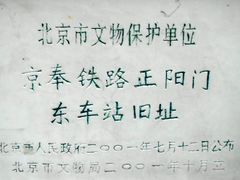 北京市文物保护单位
京奉铁路正阳门
东车站旧址
北京市人民政府二〇〇一年七月十二日公布
北京市文物局二〇〇一年十月立